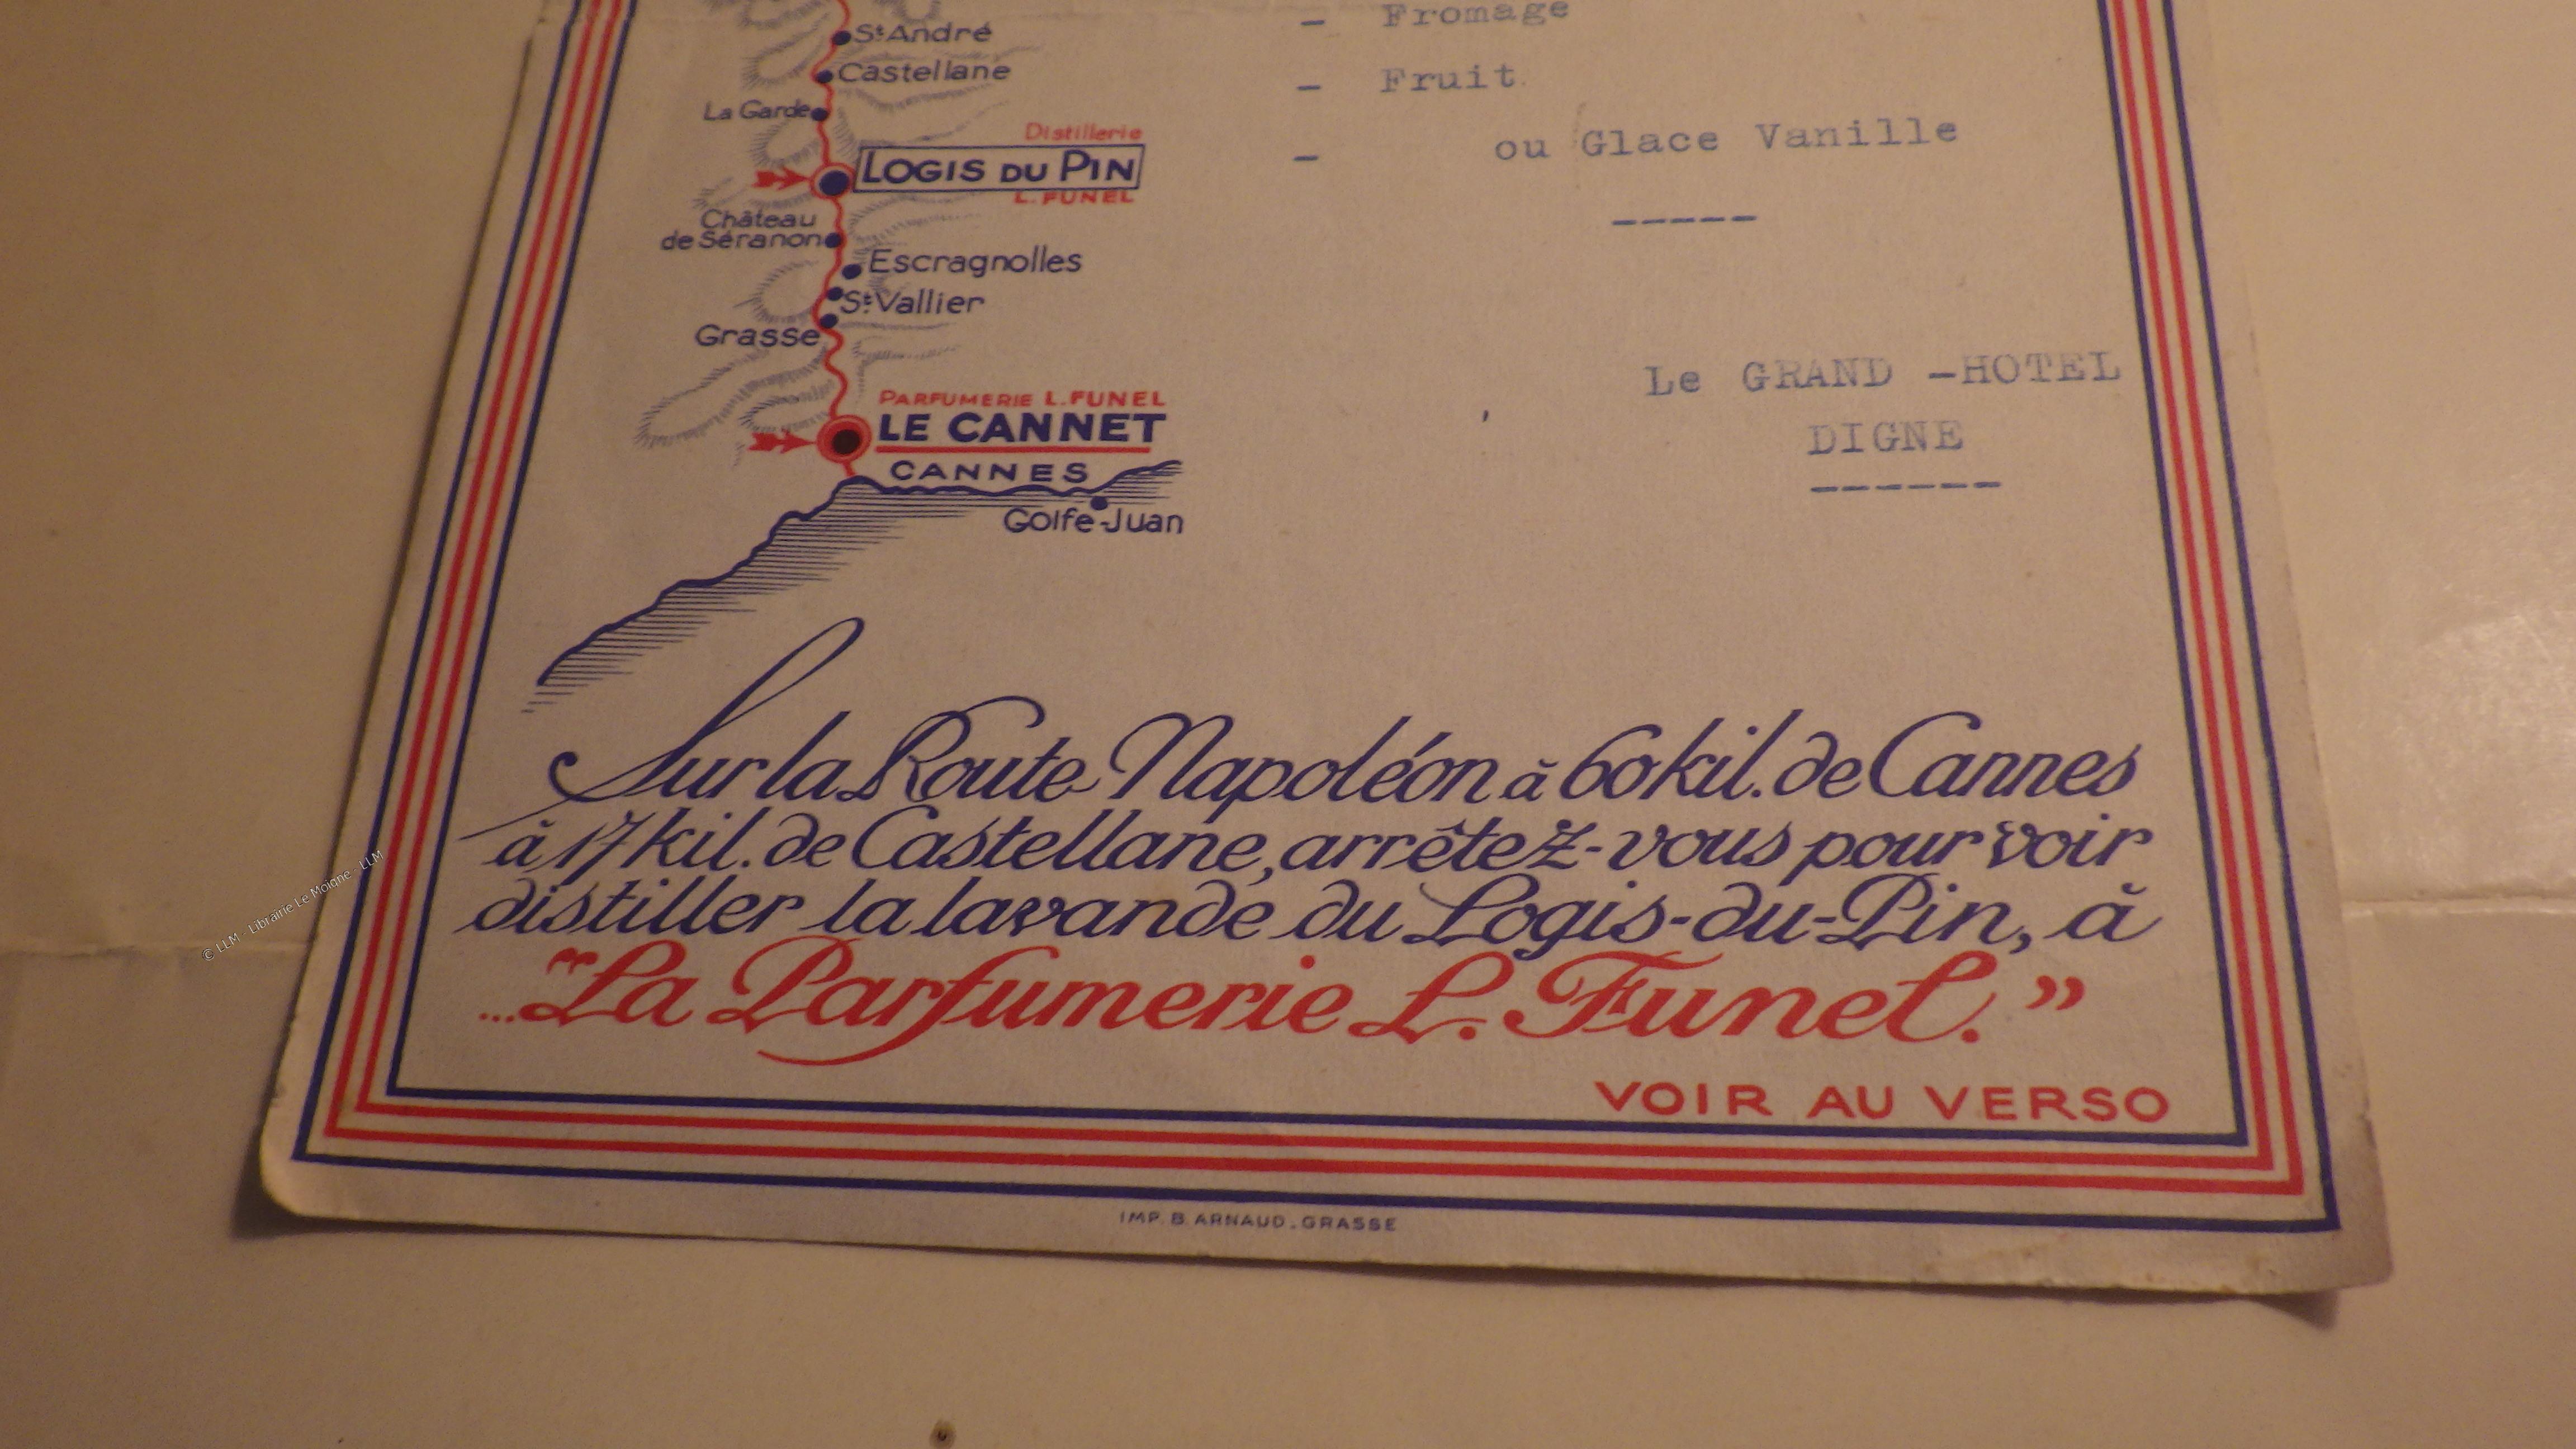 St André
Castellane
La Garde
Distillerie
LOGIS DU PIN
L. FUNEL
Château
de Séranon
Escragnolles
St Vallier
Grasse
PARFUMERIE L. FUNEL
LE CANNET
CANNES
Golfe-Juan
- Fromage
- Fruit
- ou Glace Vanille
-----
Le GRAND -HOTEL
DIGNE
------
Sur la Route Napoléon à 60 kil. de Cannes
à 17 kil. de Castellane, arrêtez-vous pour voir
distiller la lavande du Logis-du-Pin, à
..."La Parfumerie L. Funel."
VOIR AU VERSO
IMP. B. ARNAUD - GRASSE
© LLM - Librairie Le Moigne - LLM